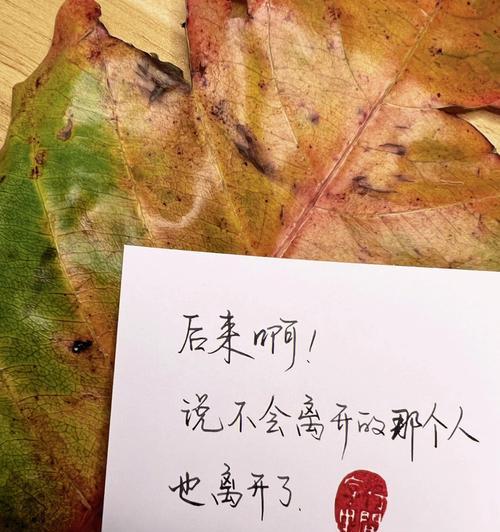 后来啊!
说不会离开的那个人
也离开了.